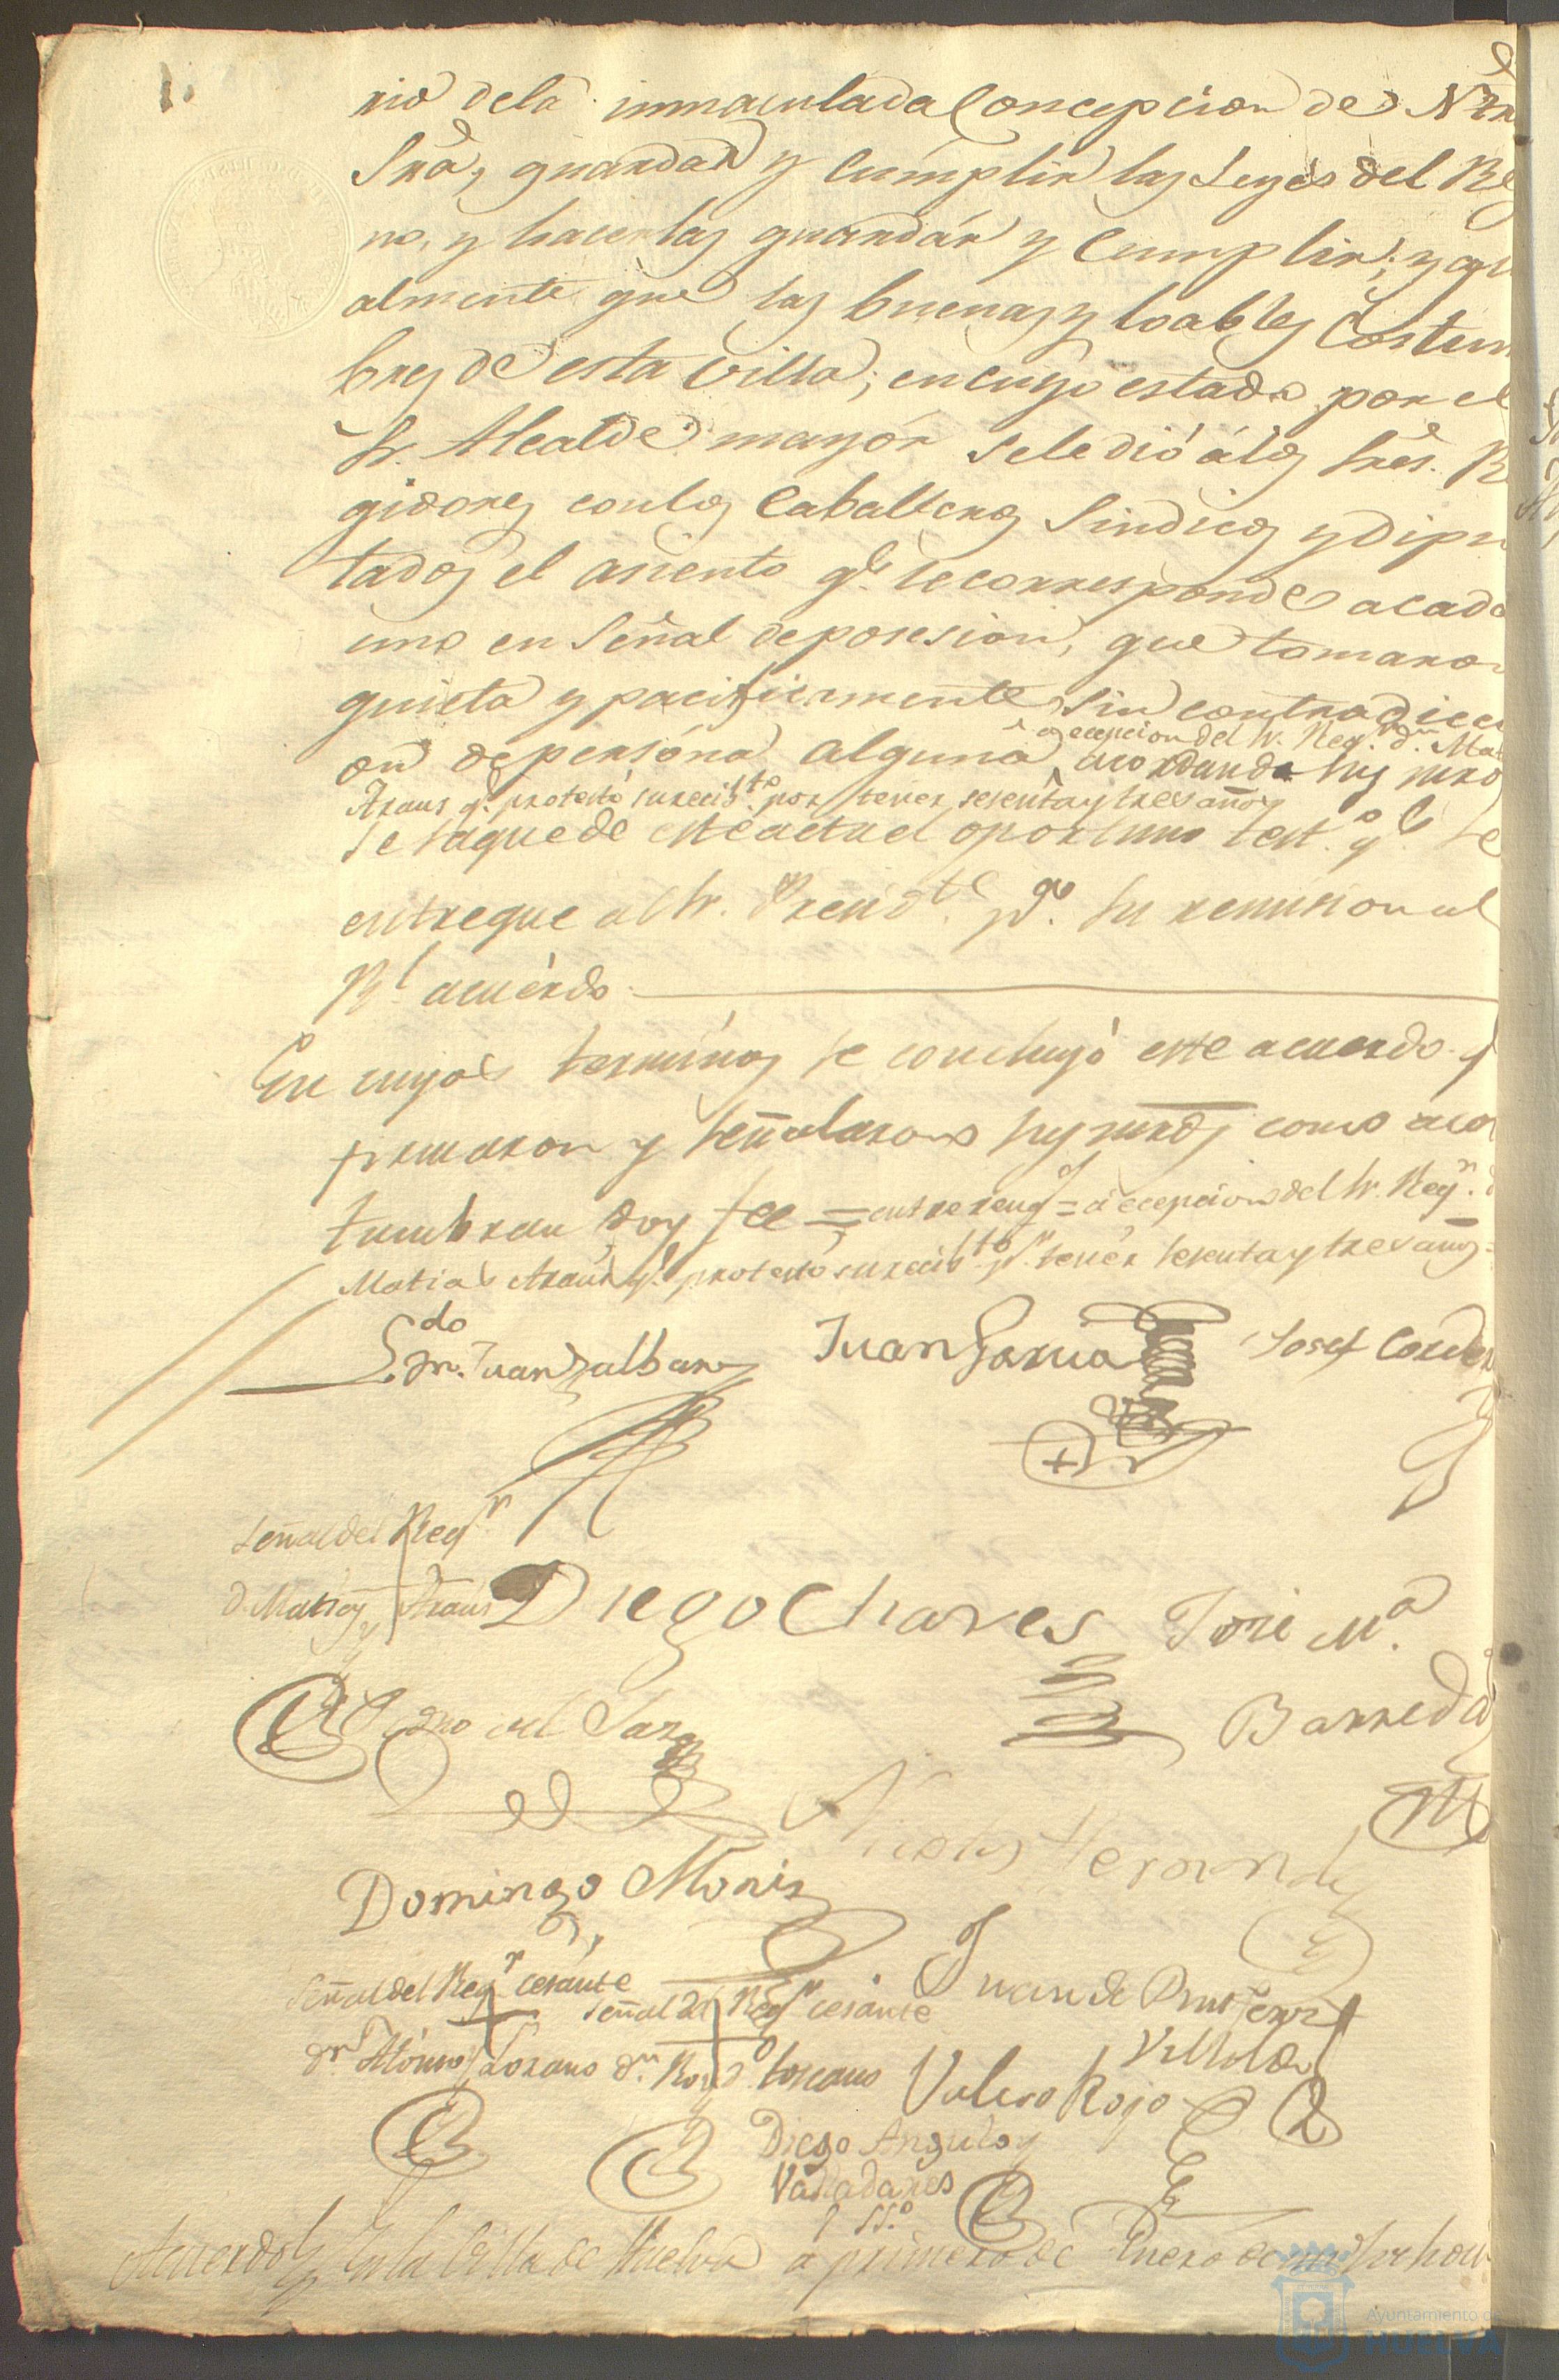 rio dela inmaculada Concepcion de Nra
Sra, guardar y Cumplir las Leyes del Rey
no, y hacerlas guardár y Cumplir; y egu
almente que las buenas y loables Costum
bres de esta Villa; en cuyo estado por el
Sr. Alcalde mayór se le dió á los Sres. Re
gidores con los Caballeros Sindicos y Dipu
tados el asiento qe. le corresponde acada
uno en Señal de posesion, que tomaron
quieta y pacificamente sin contradicci
on de persona alguna, acordando sus mrds
á ecepcion del Sr. Regr. dn. Mat
Araus qe. protestó su recibto. por tener sesenta y tres años
se saque de este acta el oportuno test. qe. se
entregue al Sr. Presidte. pa. su remision al
Rl. acuérdo
En cuyos terminos se concluyó este acuerdo q
firmaron y señalaron sus mrds como acos
tumbran doy fee = entrerengs = á ecepcion del Sr. Regr. d
Matias Araus qe. protestó su recibto. pr. tener sesenta y tres años =
Ldo dn. Juan Juan Garcia Josef Corder
Señal del Regr.
d. Matias Araus Diego Chaves Jose Ma.
Barreda
del
Nicolas Hernandez
Domingo Moniz
Señal del Regr cesante
Señal del Regr cesante Juan de
dn Alonso Lozano dn. toscano Valero Rojo
Diego Angulo y
Valladares
SSo.
Acuerdo En la Villa de Huelva á primero de Enero de mil ochoci
Ayuntamiento de
HUELVA